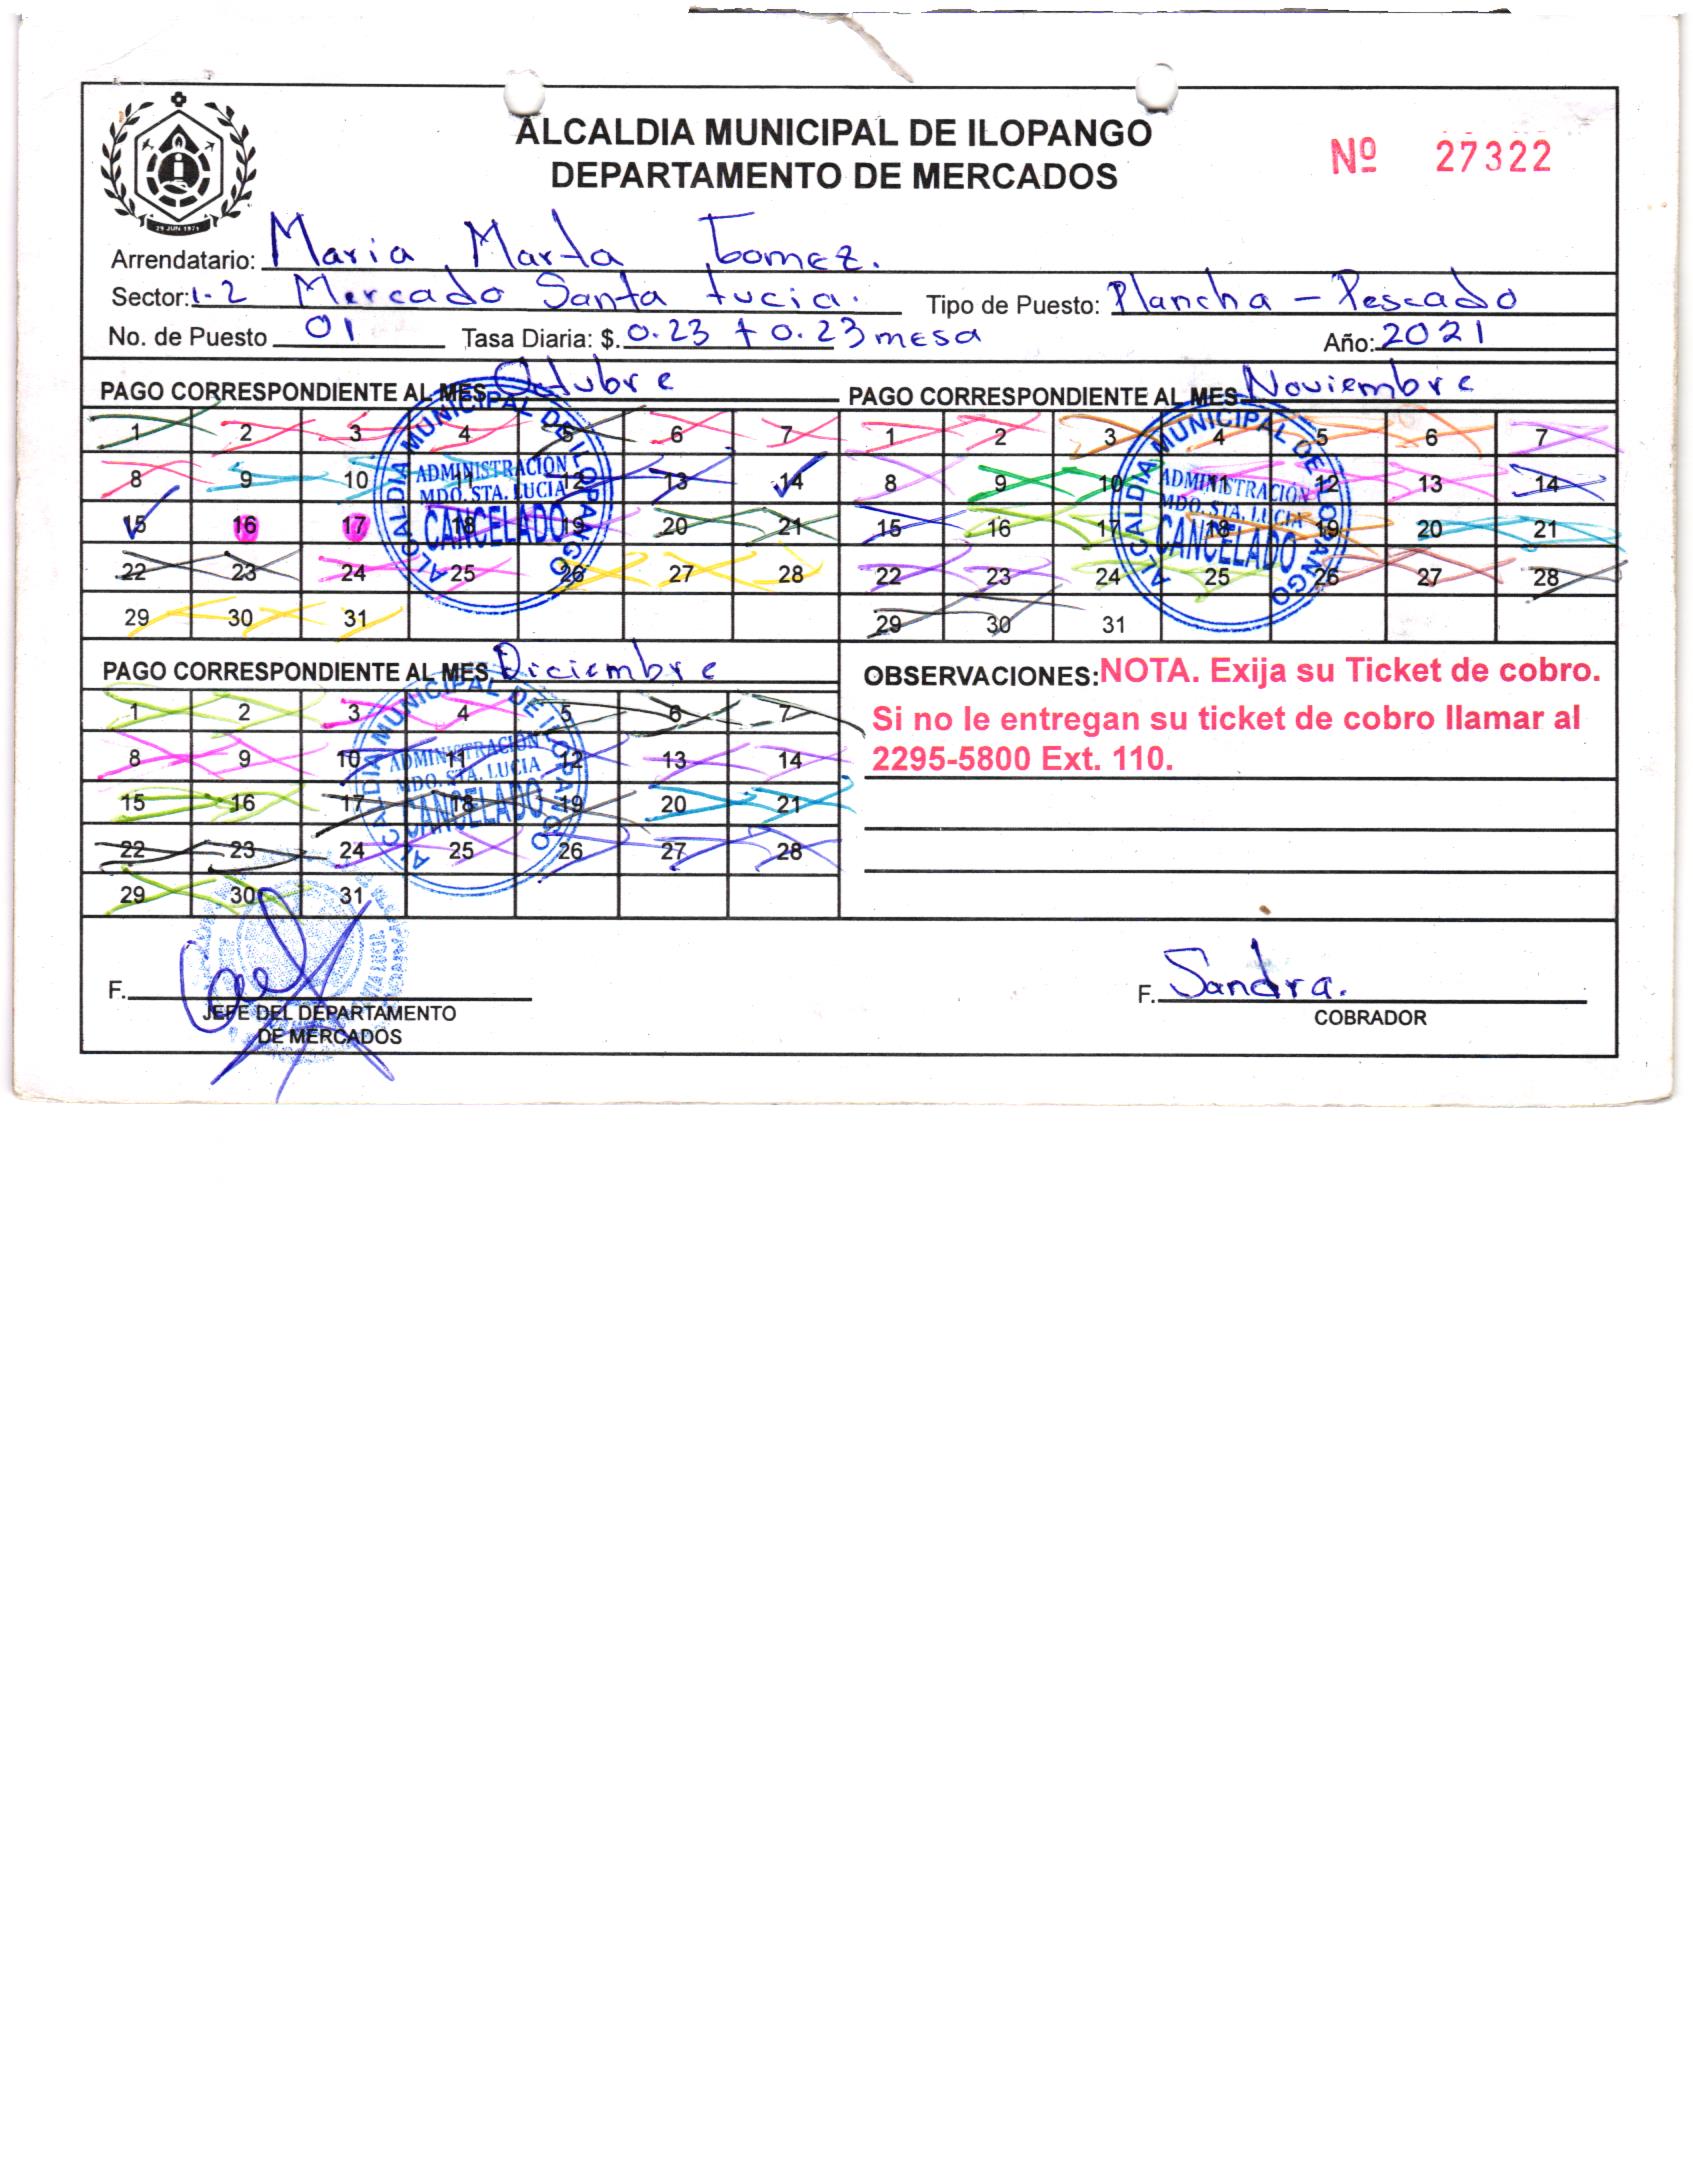 ALCALDIA MUNICIPAL DE ILOPANGO
DEPARTAMENTO DE MERCADOS
Nº 27322
29 JUN 1971
Arrendatario: Maria Marta Gomez.
Sector: 1-2 Mercado Santa Lucia. Tipo de Puesto: Plancha - Pescado
No. de Puesto 01 Tasa Diaria: $. 0.23 + 0.23 mesa Año: 2021
PAGO CORRESPONDIENTE AL MES Octubre
1 2 3 4 5 6 7
8 9 10 11 12 13 14
15 16 17 18 19 20 21
22 23 24 25 26 27 28
29 30 31
ALCALDIA MUNICIPAL DE ILOPANGO
ADMINISTRACIÓN
MDO. STA. LUCIA
CANCELADO
PAGO CORRESPONDIENTE AL MES Noviembre
1 2 3 4 5 6 7
8 9 10 11 12 13 14
15 16 17 18 19 20 21
22 23 24 25 26 27 28
29 30 31
ALCALDIA MUNICIPAL DE ILOPANGO
ADMINISTRACIÓN
MDO. STA. LUCIA
CANCELADO
PAGO CORRESPONDIENTE AL MES Diciembre
1 2 3 4 5 6 7
8 9 10 11 12 13 14
15 16 17 18 19 20 21
22 23 24 25 26 27 28
29 30 31
ALCALDIA MUNICIPAL DE ILOPANGO
ADMINISTRACIÓN
MDO. STA. LUCIA
CANCELADO
OBSERVACIONES: NOTA. Exija su Ticket de cobro.
Si no le entregan su ticket de cobro llamar al
2295-5800 Ext. 110.
F.
JEFE DEL DEPARTAMENTO
DE MERCADOS
F. Sandra.
COBRADOR